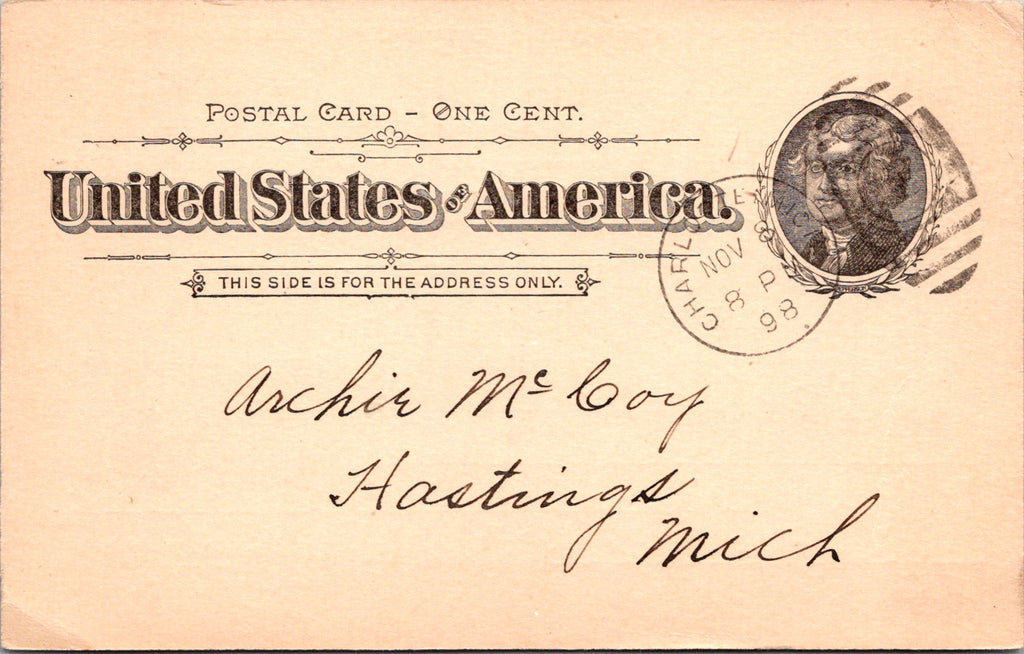 POSTAL CARD – ONE CENT.
United States OF America.
THIS SIDE IS FOR THE ADDRESS ONLY.
NOV 8
8 P
98
Archie McCoy
Hastings
Mich